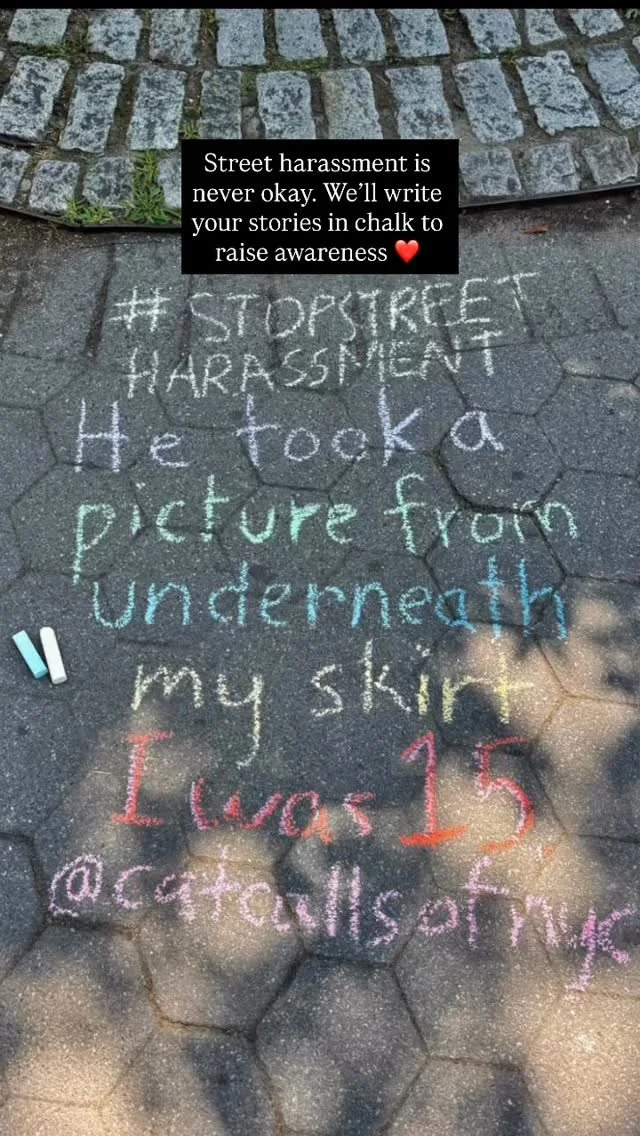 Street harassment is
never okay. We’ll write
your stories in chalk to
raise awareness ❤️
#STOPSTREET
HARASSMENT
He took a
picture from
underneath
my skirt
I was 15
@catcallsofnyc